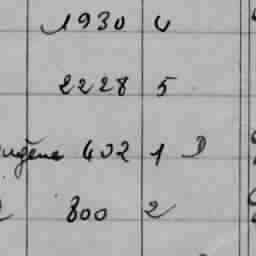 1930 4
2228 5
402 1
800 2